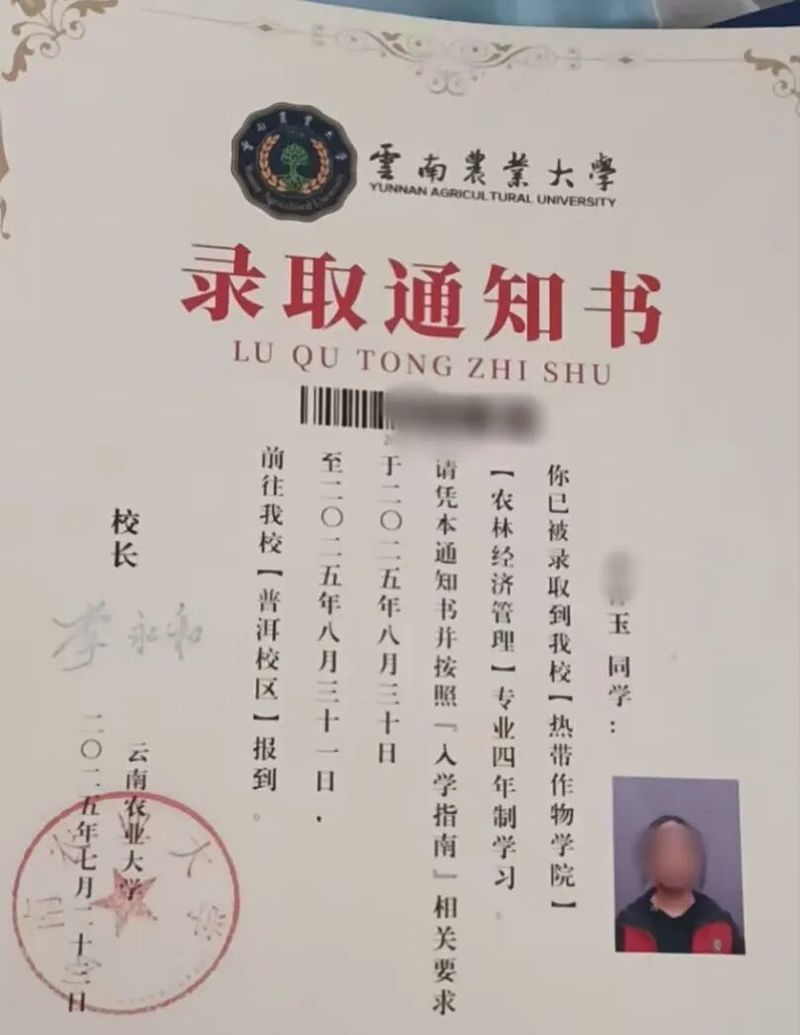 雲南農業大學
YUNNAN AGRICULTURAL UNIVERSITY
录取通知书
LU QU TONG ZHI SHU
玉 同学：
你已被录取到我校【热带作物学院】
【农林经济管理】专业四年制学习。
请凭本通知书并按照「入学指南」相关要求
于二〇二五年八月三十日
至二〇二五年八月三十一日，
前往我校【普洱校区】报到。
校长
李永和
云南农业大学
二〇二五年七月二十三日